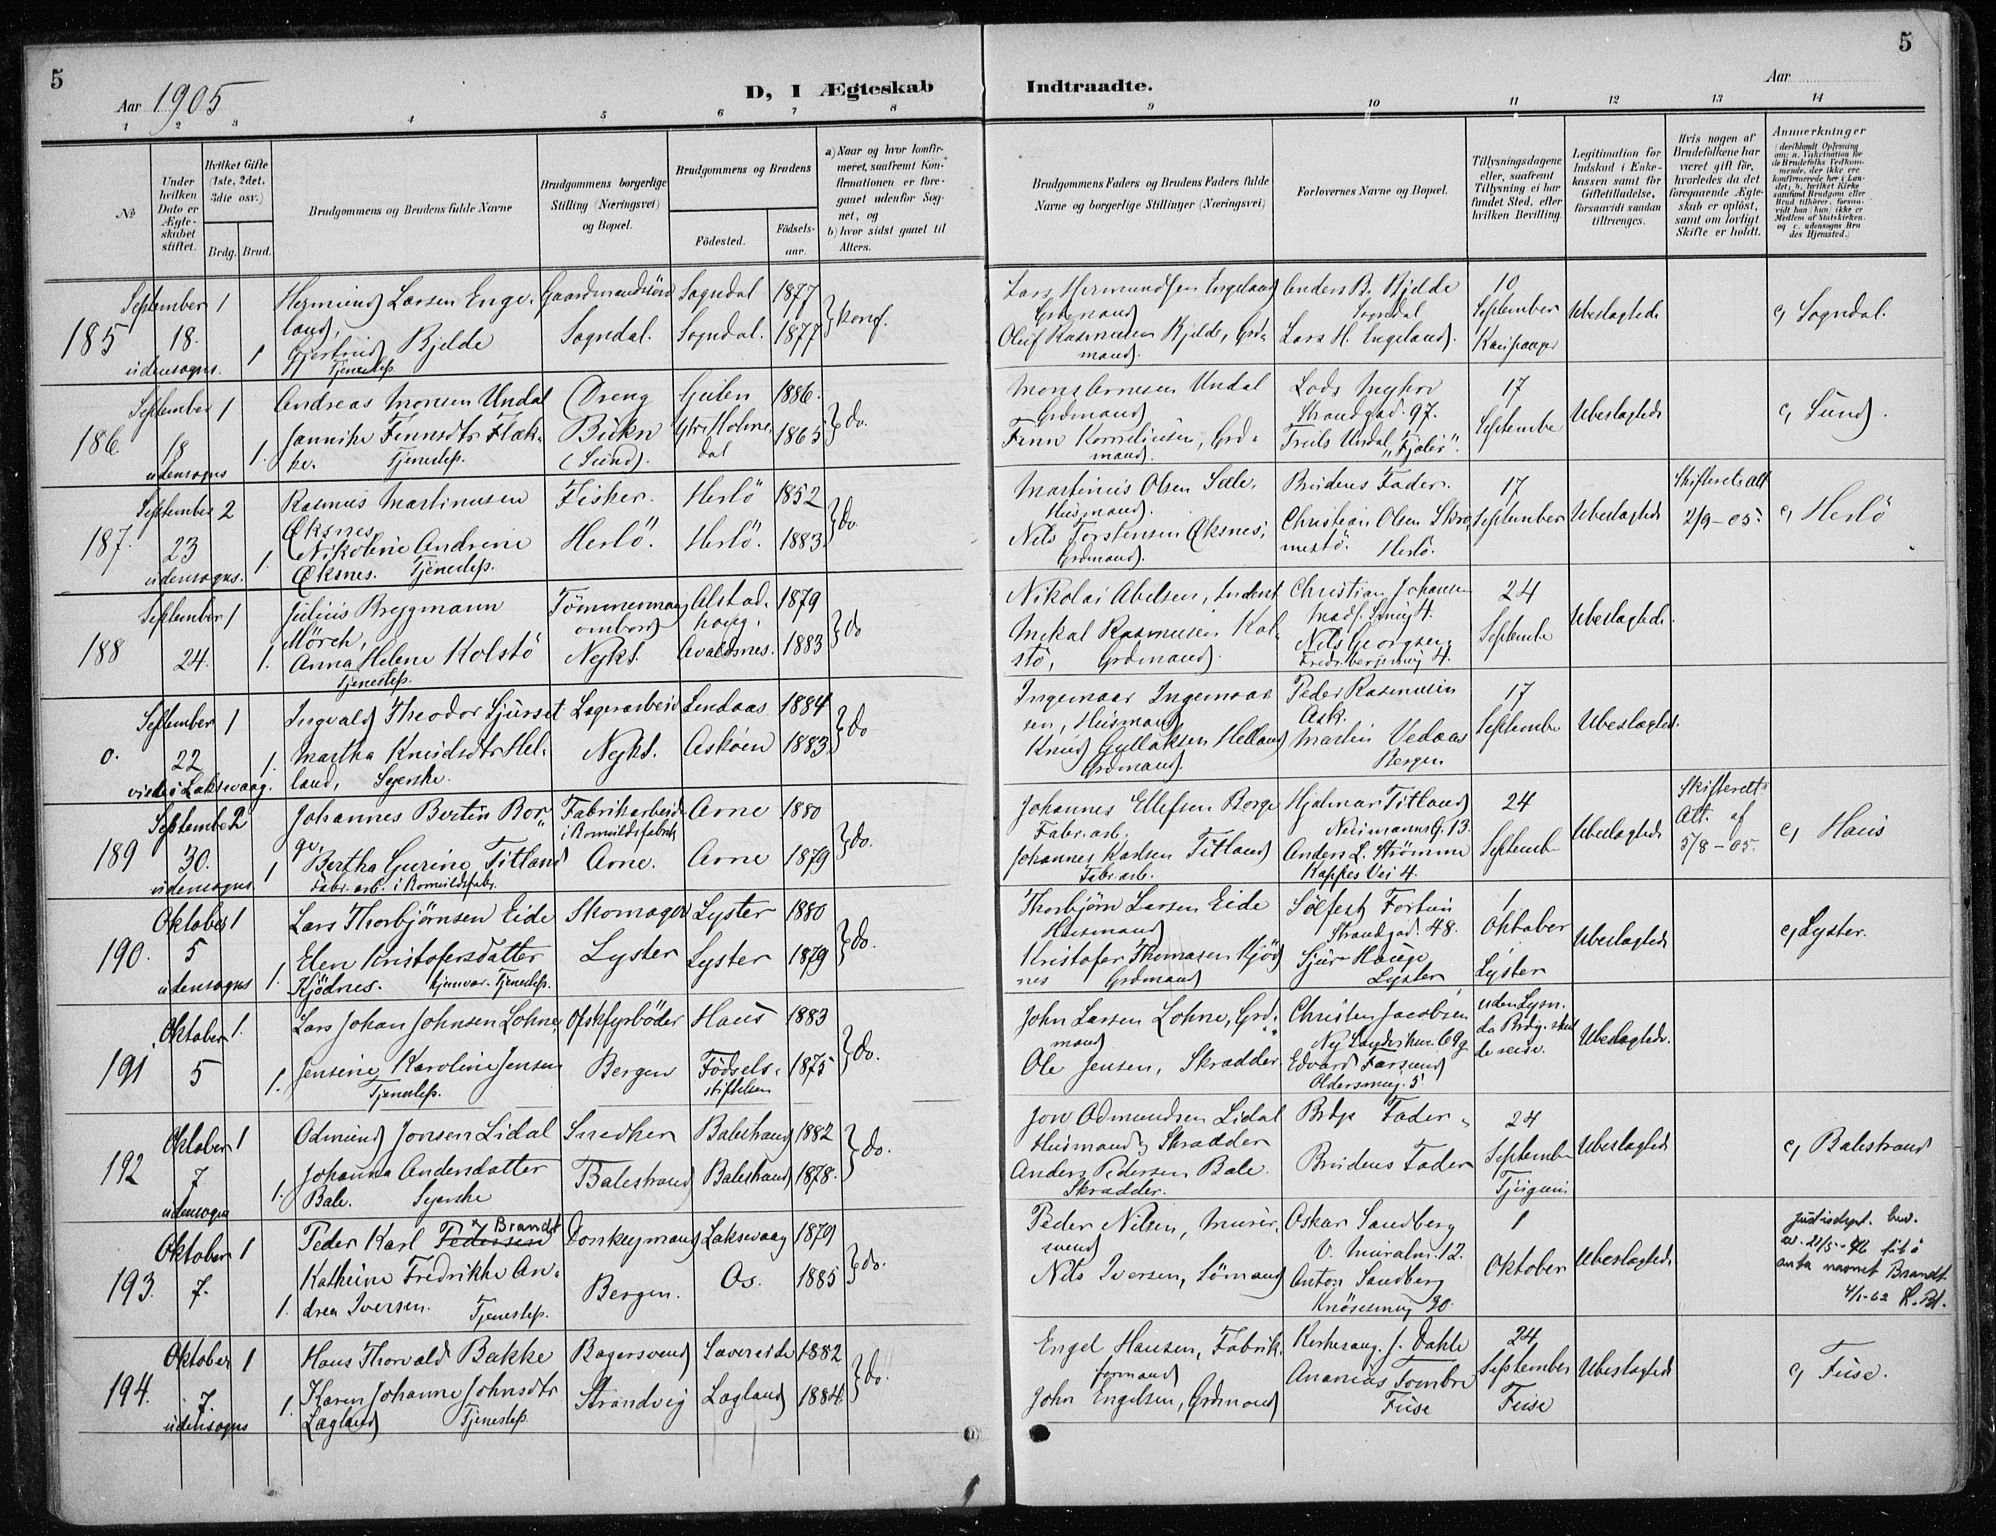 5
Aar 1905
D, I Ægteskab
Indtraadte.
Aar
5
1 2 3 4 5 6 7 8 9 10 11 12 13 14
No
Under hvilken Dato er Ægteskabet stiftet.
Hvilket Gifte (1ste, 2det, 3die osv.)
Brdg. Brud.
Brudgommens og Brudens fulde Navne
Brudgommens borgerlige Stilling (Næringsvei) og Bopæl.
Brudgommens og Brudens
Födested.
Födselsaar.
a) Naar og hvor konfirmeret, saafremt Konfirmationen er foregaaet udenfor Sognet, og
b) hvor sidst gaaet til Alters.
Brudgommens Faders og Brudens Faders fulde Navne og borgerlige Stillinger (Næringsvei)
Forlovernes Navne og Bopæl.
Tillysningsdagene eller, saafremt Tillysning ei har fundet Sted, efter hvilken Bevilling.
Legitimation for Indskud i Enkekassen samt for Giftetilladelse, forsaavidt saadan tiltrænges.
Hvis nogen af Brudefolkene har været gift før, hvorledes da det foregaaende Ægteskab er oplöst, samt om lovligt Skifte er holdt.
Anmærkninger
185 September 18. udensogns. 1 1
Hermund Larsen Engeland, Gaardmandssön Sogndal 1877 } konf.
Gjertrud Bjelde Tjenestep. Sogndal. Sogndal. 1877
Lars Hermundsen Engeland Grdmand Anders B. Bjelde Sogndal 10 September Kaupanger Ubeslægtede c, Sogndal.
Oluf Rasmussen Bjelde, Grdmand. Lars H. Engeland.
186 September 18 udensogns 1 1.
Andreas Monsen Undal Dreng Gulen 1886. } do.
Jannike Finnsdtr Flække. Tjenestep. (Sund). 1865
Mons Arnesen Undal Grdmand Strandgad. 97. 17 September Ubeslægtede c, Sund.
Finn Korneliusen, Grdmand. Undal "Fjaler".
187. September 23 udensogns. 2 1.
Rasmus Martinusen Öksnes Fisker. Herlö 1852 } do.
Nikoline Andrine Öksnes. Tjenestep. Herlö. Herlö. 1883.
Martinus Olsen Sæle, Husmand. Brudens Fader. 17 September Ubeslægtede Skifterets Att 2/9-05. c, Herlö
Nils Torstensen Öksnes, Grdmand. Christian Olsen Herlö.
188 September 24. 1 1.
Julius Breggmann Mörch, Tömmermand ombord Alstadhoug. 1879 } do
Anna Helene Kolstö Tjenestep. Nykk. Avaldsnes. 1883
Nikolai Abelsen, Christian Johansen 4. 24 September Ubeslægtede.
Mikal Rasmusen Kolstö, Grdmand. Nils Georgsen, 4.
0. September 22 viede i Laksevaag. 1 1.
Ingvald Theodor Sjurset Lagerarbeid Lindaas 1884 } do
Martha Knudsdtr Helland, Syerske. Nykk. Asköen 1883.
Ingemaar Ingemaarsen, Husmand Peder Rasmusen Ask. 17 September Ubeslægted.
Knud Helland Grdmand. Martin Vedaas Bergen
189 September 30. udensogns. 2 1
Johannes Bertin Borge, Fabrikarbeider i Romuldsfabrik Arne 1880 } do.
Bertha Gurine Titland Fabr. arb. i Romuldsfabr. Arne. Arne 1879
Johannes Ellefsen Borge Fabr. arb. Hjalmar Titland Neumannsg. 13. 24 Septemb Ubeslægtede Skifterets Att. af 5/8-05. c, Haus
Johannes Karlsen Titland Fabr. arb. Anders L. Strömme Kappes Vei 4.
190. Oktober 5 udensogns 1 1.
Lars Thorbjørnsen Eide Skomager Lyster 1880 } do.
Elen Kristofersdatter Kjödnes. Tjenestep. Lyster Lyster 1879
Thorbjörn Larsen Eide Husmand Sölfest Fortun Strandgad. 48. 1 Oktober Lyster Ubeslægtede c, Lyster.
Kristofer Thomasen Kjödnes Grdmand Sjur Hauge Lyster
191 Oktober 5 1. 1.
Lars Johan Johnsen Lohne, Ofskfyrböder Haus 1883 } do.
Jensine Karoline Jensen Tjenestep. Bergen Födselsstiftelsen 1875
John Larsen Lohne, Grdmand Christen Jacobsen uden Lysn. da Brdg. skulde reise. Ubeslægtede.
Ole Jensen, Skrædder. Edvard Farsund 5
192 Oktober 7 udensogns 1 1.
Odmund Jonsen Lidal Snedker Balestrand 1882 } do.
Johanna Andersdatter Bale. Syerske Balestrand Balestrand 1878.
Jon Odmundsen Lidal Husmand, Skrædder Brdgs Fader 24 September Tjugum Ubeslægtede c, Balestrand
Anders Pedersen Bale. Skrædder. Brudens Fader
193. Oktober 7. 1 1.
Peder Karl Pedersen Brandt Donkeymand Laksevaag 1879 } do.
Kathrine Fredrikke Andrea Iversen. Tjenestep. Bergen. Os. 1885
Peder Nilsen, Murersvend Oskar Sandberg V. Muralm. 12. 1 Oktober Ubeslægtede
Nils Iversen, Sömand Anton Sandberg Knösesmug 30.
Justisdept. bev. av 21/5-46 til å anta navnet Brandt. 4/1-62
194. Oktober 7. udensogns 1 1.
Hans Thorvald Bakke Bagersvend Savereide 1882 } do.
Karen Johanne Johnsdtr Lægland Tjenestep. Strandvig Lægland 1884
Engel Hansen, Fabrikformand Kirkesang. J. Dahle 24 September Fuse Ubeslægtede c, Fuse.
John Engelsen, Grdmand Ananias Tombre Fuse